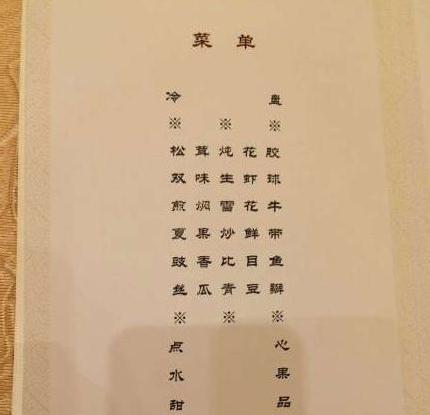 菜 单
冷 盘
※ ※ ※
松 茸 炖 花 胶
双 味 生 虾 球
煎 焖 雪 花 牛
夏 果 炒 鲜 带
豉 香 比 目 鱼
丝 瓜 青 豆 瓣
※ ※ ※
点 心
水 果
甜 品